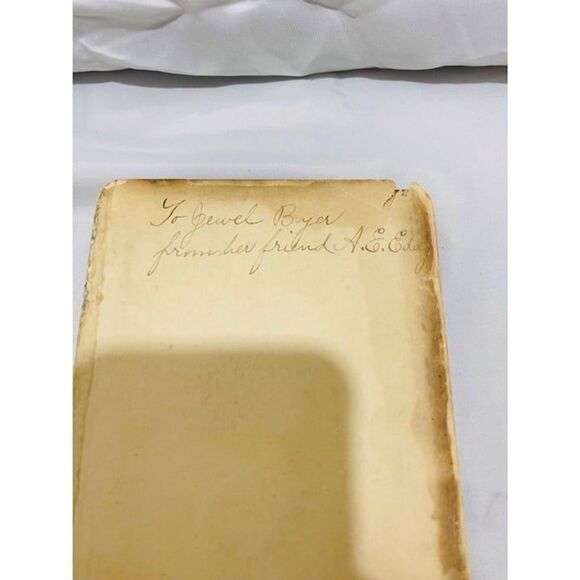 To Jewel Byer
from her friend A.E.